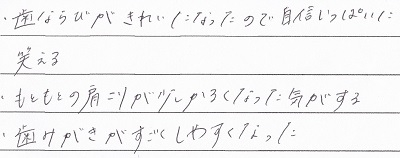 ・歯ならびがきれいになったので自信いっぱいに
笑える
・もともとの肩こりが少しかるくなった気がする
・歯みがきがすごくしやすくなった